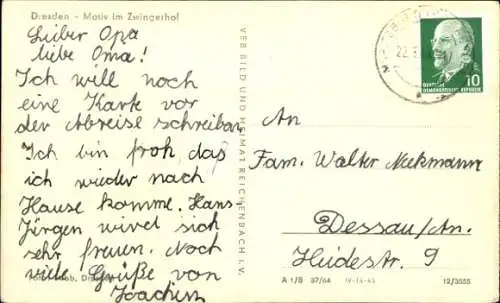 Dresden - Motiv im Zwingerhof
Lieber Opa
liebe Oma!
Ich will noch
eine Karte vor
der Abreise schreiben
Ich bin froh, daß
ich wieder nach
Hause komme. Hans-
Jürgen wird sich
sehr freuen. Noch
viele Grüße von
Joachim
VEB BILD UND HEIMAT REICHENBACH I. V.
22.
10
DEUTSCHE
DEMOKRATISCHE REPUBLIK
An
Fam. Walter Neckmann
Dessau/An.
Heidestr. 9
A 1/B 37/64 IV-14-45 12/3555